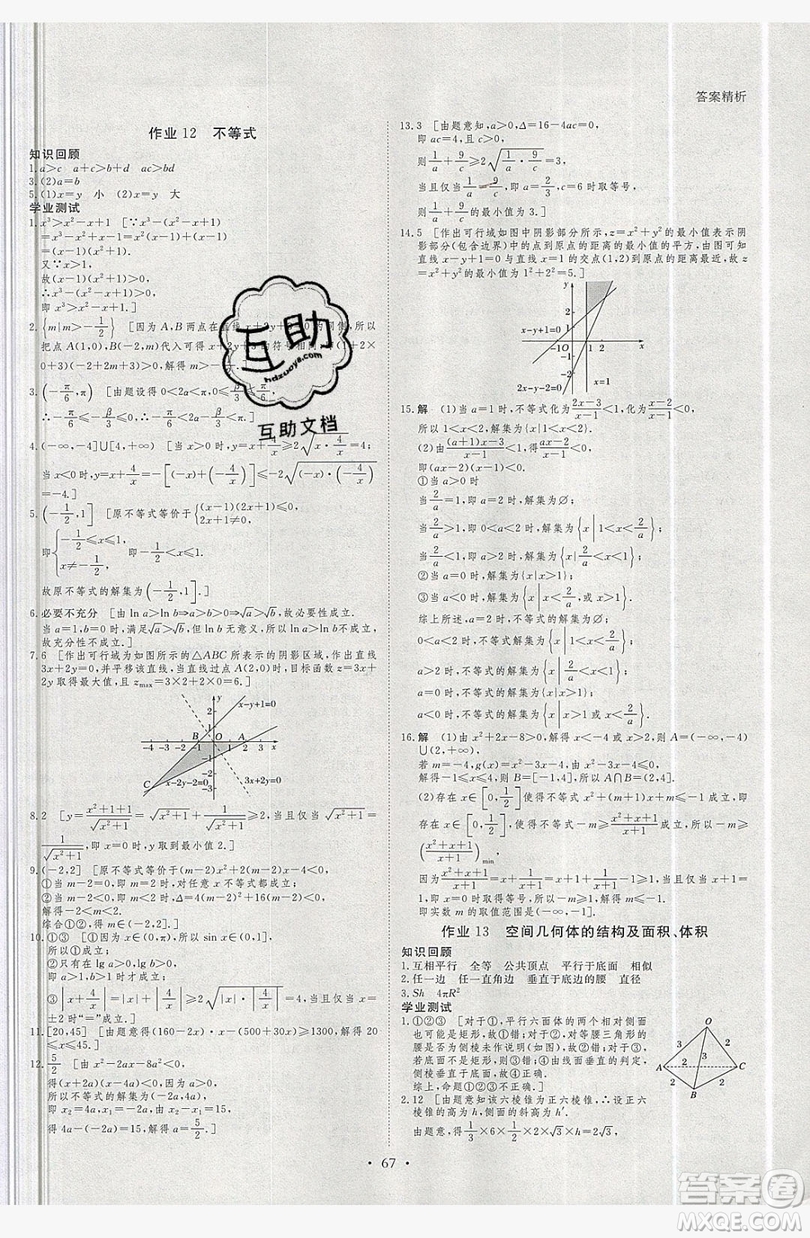 答案精析
作业 12　不等式
知识回顾
1.a>c　a+c>b+d　ac>bd
3.(2)a=b
5.(1)x=y　小　(2)x=y　大
学业测试
1.x³>x²-x+1　[∵x³-(x²-x+1)=x³-x²+x-1=x²(x-1)+(x-1)=
(x-1)(x²+1).
又∵x>1,
故(x-1)(x²+1)>0.
∴x³-(x²-x+1)>0,
即 x³>x²-x+1.]
2.{m|m>-1/2}　[因为 A,B 两点在直线 x+2y+m=0 的同侧,所以
把点 A(1,0),B(2,-m)代入可得 x+2y+m 的符号相同,即(1+2×0+m)
>0,解得 m>-1/2.]
3.(-π/6,π)　[由题设得 0<2α<π,0≤β/3≤π/6,
∴-π/6≤-β/3≤0,∴-π/6<2α-β/3<π.]
4.(-∞,-4]∪[4,+∞)　[当 x>0 时,y=x+4/x≥2√(x×4/x)=4;
当 x<0 时,y=x+4/x=-[(-x)+(-4/x)]≤-2√((-x)×(-4/x))
=-4.]
5.(-1/2,1]　[原不等式等价于{(x-1)(2x+1)≤0, 2x+1≠0.
即{-1/2≤x≤1, x≠-1/2, 即-1/2<x≤1.
故原不等式的解集为(-1/2,1].]
6.必要不充分　[由 ln a>ln b⇒a>b>0⇒√a>√b,故必要性成立.
当 a=1,b=0 时,满足√a>√b,但 ln b 无意义,所以 ln a>ln b 不成立,
故充分性不成立.]
7.6　[作出可行域为如图所示的△ABC 所表示的阴影区域,作出直线
3x+2y=0,并平移该直线,当直线过点 A(2,0)时,目标函数 z=3x+
2y 取得最大值,且 zmax=3×2+2×0=6.]
x-y+1=0
-4 -3 -2 -1 O 1 2 3 4 x
3x+2y=0
8.2　[y=(x²+1+1)/√(x²+1)=√(x²+1)+1/√(x²+1)≥2,当且仅当√(x²+1)=
1/√(x²+1),即 x=0 时,y 取到最小值 2.]
9.(-2,2]　[原不等式等价于(m-2)x²+2(m-2)x-4<0,
①当 m-2=0,即 m=2 时,对任意 x 不等式都成立;
②当 m-2<0,即 m<2 时,Δ=4(m-2)²+16(m-2)<0,
解得-2<m<2.
综合①②,得 m∈(-2,2].]
10.①③　[①x,y∈(0,π),所以 sin x>0,
即①成立;
②a>0,b>0,但 lg a>0,lg b>0 不一定成立,
即②不成立;
③|a+4/a|=|a|+|4/a|≥2√(|a|·|4/a|)=4,当且仅当|a|=2
时“=”成立.]
11.[20,45]　[由题意得(160-2x)·x-(500+30x)≥1300,解得 20
≤x≤45.]
12.5/2　[由 x²-2ax-8a²<0,
得(x+2a)(x-4a)<0,因为 a>0,
所以不等式的解集为(-2a,4a),
即 x₂=4a,x₁=-2a,由 x₂-x₁=15,
得 4a-(-2a)=15,解得 a=5/2.]
13.3　[由题意知,a>0,Δ=16-4ac=0,
即 ac=4,c>0,
则 1/a+9/c≥2√(1/a×9/c)=3,
当且仅当 1/a=9/c,即 a=2/3,c=6 时取等号,
则 1/a+9/c 的最小值为 3.]
14.5　[作出可行域如图中阴影部分所示,x²+y² 的最小值表示阴影
部分(包含边界)中的点到原点的距离的最小值的平方,由图可知
直线 x-y+1=0 与直线 x=1 的交点(1,2)到原点的距离最近,故
x²+y² 的最小值为 1²+2²=5.]
x-y+1=0
O 1 2 x
2x-y-2=0
x=1
15.解　(1)当 a=1 时,不等式化为(2x-3)/(x-1)<1,化为(x-2)/(x-1)<0,
所以 1<x<2,解集为{x|1<x<2}.
(2)由(a+1)x-3/(x-1)<1,得(ax-2)/(x-1)<0,
即(ax-2)(x-1)<0.
①当 a>0 时
当 2/a=1,即 a=2 时,解集为∅;
当 2/a>1,即 0<a<2 时,解集为{x|1<x<2/a};
当 2/a<1,即 a>2 时,解集为{x|2/a<x<1}.
②当 a=0 时,解集为{x|x>1}.
③当 a<0 时,解集为{x|x<2/a,或 x>1}.
综上所述,a=2 时,解集为∅;
0<a<2 时,不等式的解集为{x|1<x<2/a};
a>2 时,不等式的解集为{x|2/a<x<1};
a=0 时,不等式的解集为{x|x>1};
a<0 时,不等式的解集为{x|x<2/a,或 x>1}.
16.解　(1)由 x²+2x-8>0,解得 x<-4 或 x>2,则 A=(-∞,-4)
∪(2,+∞).
若 m=-4,g(x)=x²-3x-4,由 x²-3x-4≤0,
解得-1≤x≤4,则 B=[-1,4].所以 A∩B=(2,4].
(2)存在 x∈[0,1/2],使得不等式 x²+(m+1)x+m≤-1,
即-m≥(x²+x+1)/(x+1)成立,所以-m≥((x²+x+1)/(x+1))min.
因为(x²+x+1)/(x+1)=x+1+1/(x+1)-1≥1,当且仅当 x+1=1,
即 x=0 时,取得等号,所以-m≥1,解得 m≤-1.
即实数 m 的取值范围是(-∞,-1].
作业 13　空间几何体的结构及面积、体积
知识回顾
1.互相平行　全等　公共顶点　平行于底面　相似
2.任一边　任一直角边　垂直于底边的腰　直径
3.Sh　4πR²
学业测试
1.①②③　[对于①,平行六面体的两个相对侧面
也可能是矩形,故①错;对于②,对等腰三角形的
腰是否为侧棱未作说明(如图),故②错;对于③,
若底面不是矩形,则③错;④由线面垂直的判定,
侧棱垂直于底面,故④正确.
综上,命题①②③不正确.]
O
A
B
C
2.12　[由题意知该六棱锥为正六棱锥,设正六
棱锥的高为 h,侧面的斜高为 h′.
由题意,得 1/3×6×1/2×2×√3×h=2√3,
· 67 ·
互助
hdzuoye.com
互助文档
答案圈
MXQE.COM